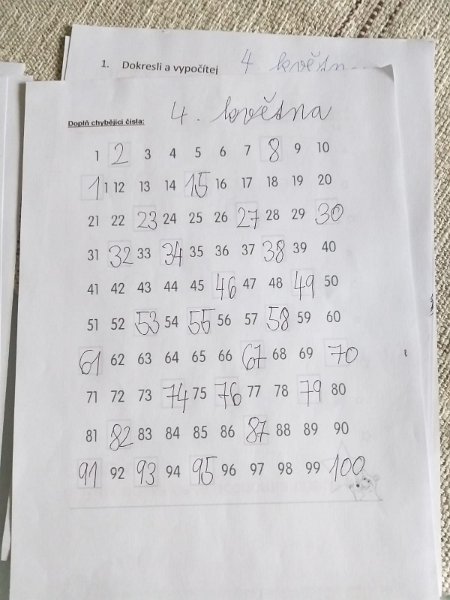 1. Dokresli a vypočítej 4. květn
Doplň chybějící čísla: 4. května
1 2 3 4 5 6 7 8 9 10
11 12 13 14 15 16 17 18 19 20
21 22 23 24 25 26 27 28 29 30
31 32 33 34 35 36 37 38 39 40
41 42 43 44 45 46 47 48 49 50
51 52 53 54 55 56 57 58 59 60
61 62 63 64 65 66 67 68 69 70
71 72 73 74 75 76 77 78 79 80
81 82 83 84 85 86 87 88 89 90
91 92 93 94 95 96 97 98 99 100